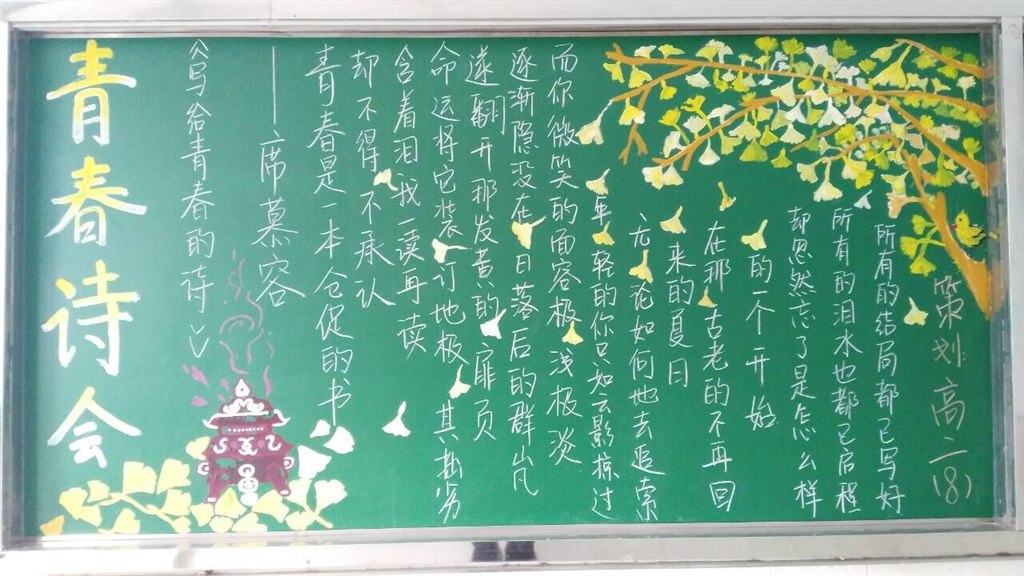 策划:高二(8)
所有的结局都已写好
所有的泪水也都已启程
却忽然忘了是怎么样
的个开始
在那古老的不再回
来的夏日
无论如何地去追索
年轻的你只如云影掠过
而你微笑的面容极浅极淡
逐渐隐没在日落后的群岚
遂翻开那发黄的扉页
命运将它装订地极其拙劣
含着泪我一读再读
却不得不承认
青春是一本仓促的书
——席慕容
《写给青春的诗》
青春诗会